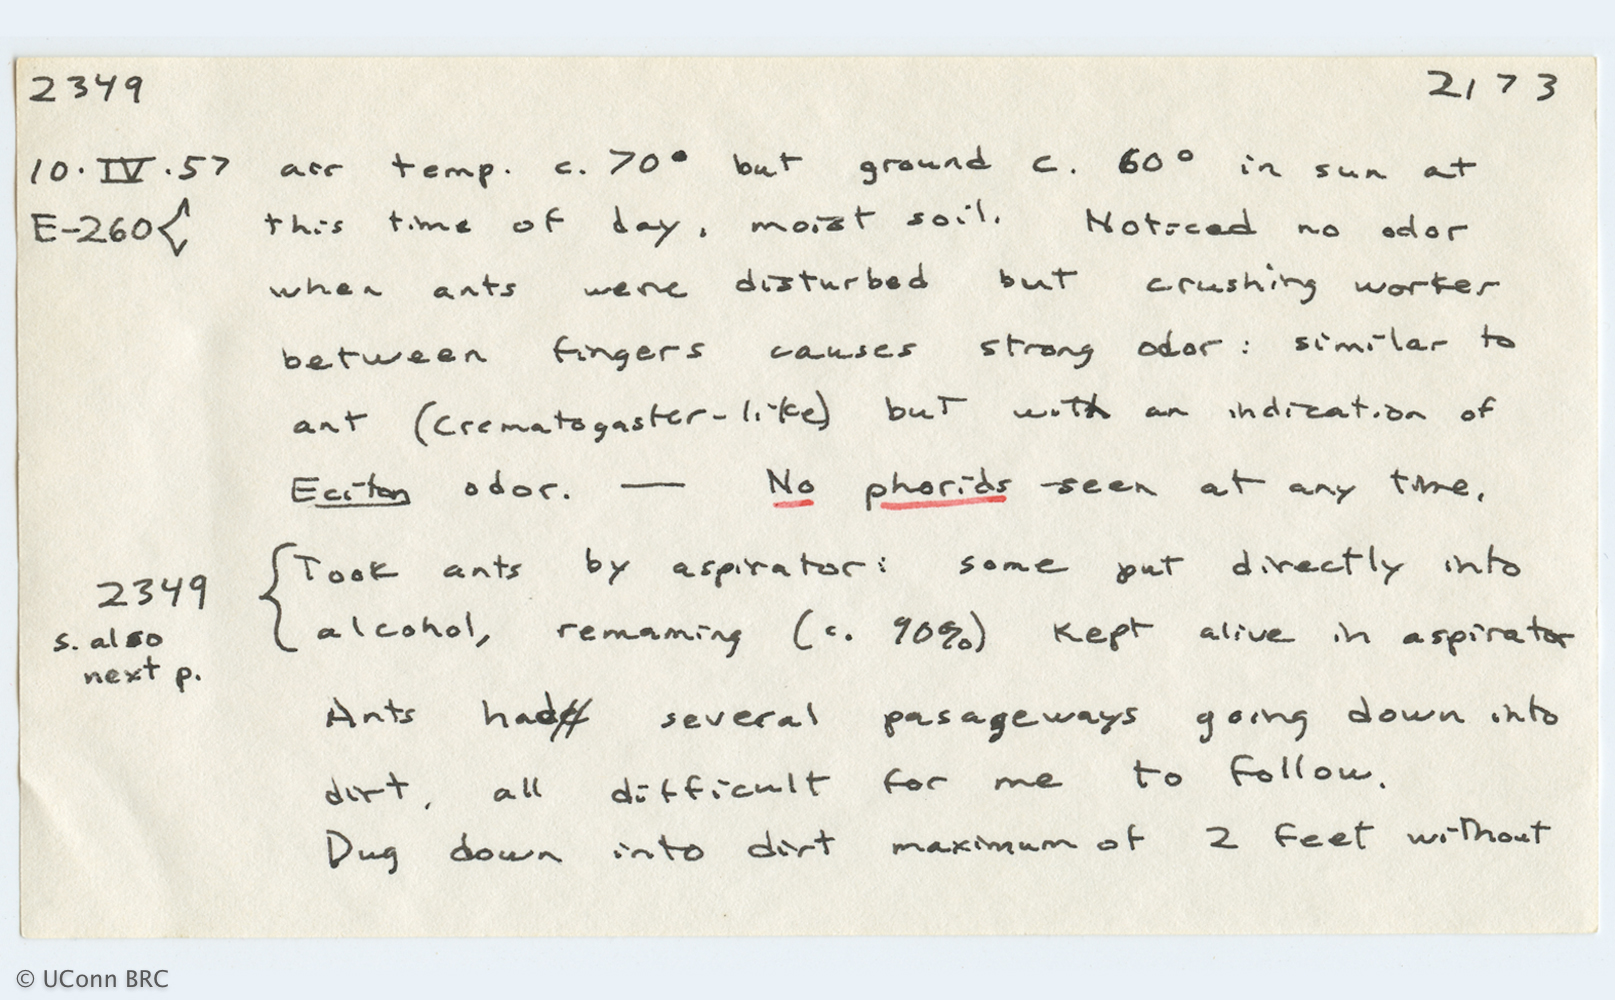 2349 2173
10.IV.57 air temp. c. 70° but ground c. 60° in sun at
E-260{ this time of day, moist soil. Noticed no odor
when ants were disturbed but crushing worker
between fingers causes strong odor: similar to
ant (Crematogaster-like) but with an indication of
Eciton odor. — No phorids seen at any time.
{Took ants by aspirator: some put directly into
2349
alcohol, remaining (c. 90%) kept alive in aspirator
s. also
next p.
Ants had several pasageways going down into
dirt, all difficult for me to follow.
Dug down into dirt maximum of 2 feet without
© UConn BRC